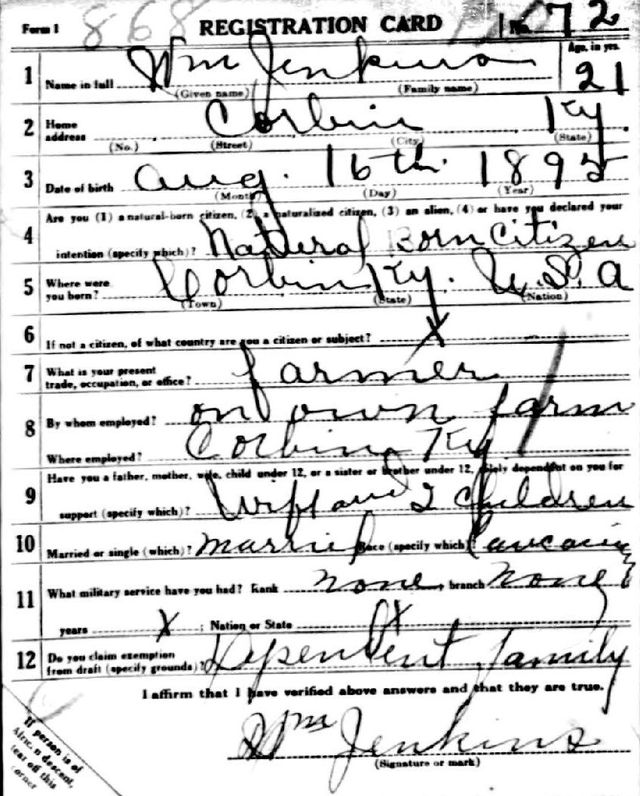 Form 1 868 REGISTRATION CARD No. 72
1 Name in full Wm Jenkins Age, in yrs. 21
(Given name) (Family name)
2 Home address Corbin Ky
(No.) (Street) (City) (State)
3 Date of birth Aug. 16th 1895
(Month) (Day) (Year)
4 Are you (1) a natural-born citizen, (2) a naturalized citizen, (3) an alien, (4) or have you declared your
intention (specify which)? Natural Born Citizen
5 Where were you born? Corbin Ky. U.S.A
(Town) (State) (Nation)
6 If not a citizen, of what country are you a citizen or subject? X
7 What is your present trade, occupation, or office? farmer
8 By whom employed? on own farm
Where employed? Corbin Ky
9 Have you a father, mother, wife, child under 12, or a sister or brother under 12, solely dependent on you for
support (specify which)? Wife and 2 children
10 Married or single (which)? married Race (specify which)? Caucasian
11 What military service have you had? Rank none, branch none
years X; Nation or State X
12 Do you claim exemption from draft (specify grounds)? Dependent family
I affirm that I have verified above answers and that they are true.
Wm Jenkins
(Signature or mark)
If person is of
African descent,
tear off this
corner